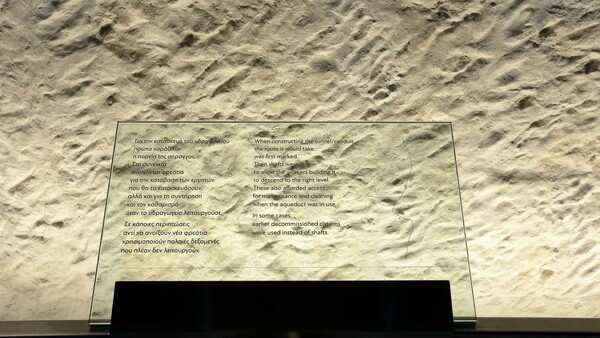 Για την κατασκευή του υδραγωγείου
πρώτα χαράζεται
η πορεία της σήραγγος.
Στη συνέχεια
ανοίγονται φρεάτια
για την κατάβαση των εργατών
που θα το κατασκευάσουν,
αλλά και για τη συντήρηση
και τον καθαρισμό
όταν το υδραγωγείο λειτουργούσε.
Σε κάποιες περιπτώσεις
αντί να ανοίξουν νέα φρεάτια
χρησιμοποιούν παλαιές δεξαμενές
που πλέον δεν λειτουργούν.
When constructing the tunnel/conduit
the route it would take
was first marked.
Then shafts we
to allow the workers building it
to descend to the right level.
These also afforded access
for maintenance and cleaning
when the aqueduct was in use.
In some cases,
earlier decommissioned cisterns
were used instead of shafts.